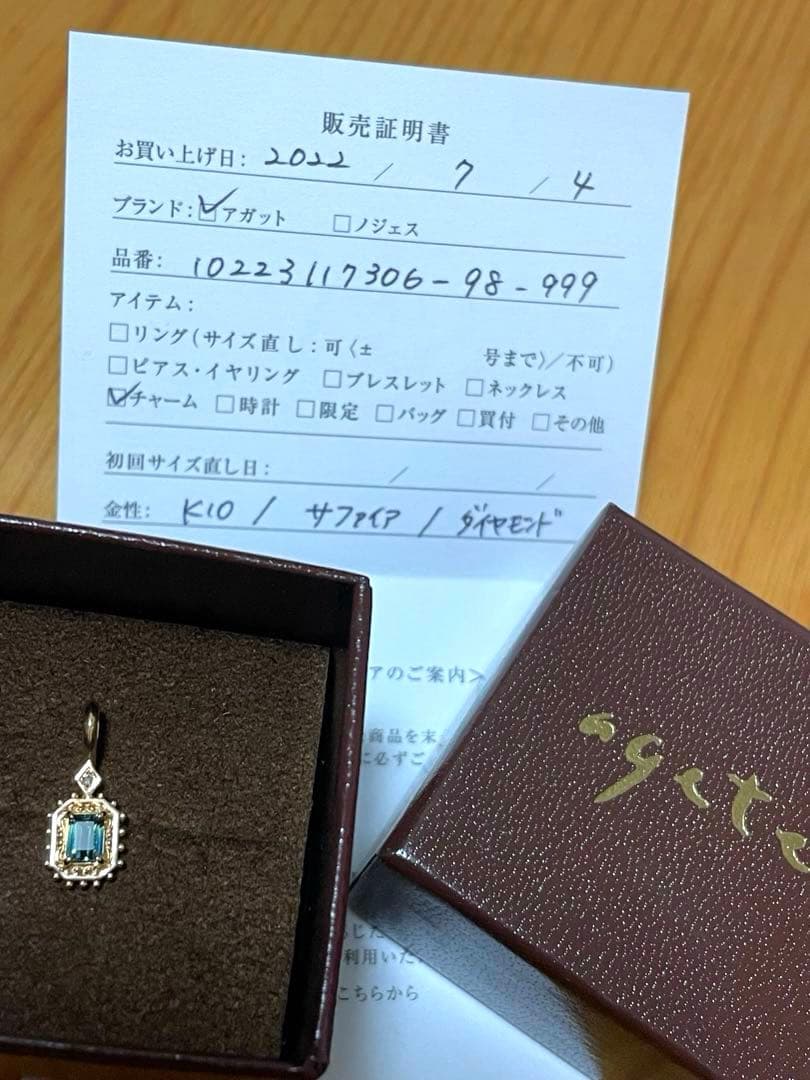 販売証明書
お買い上げ日: 2022 / 7 / 4
ブランド:☑アガット □ノジェス
品番: 10223117306-98-999
アイテム:
□リング(サイズ直し:可〈± 号まで〉/不可)
□ピアス・イヤリング □ブレスレット □ネックレス
☑チャーム □時計 □限定 □バッグ □買付 □その他
初回サイズ直し日: / /
金性: K10 / サファイア / ダイヤモンド
アのご案内>
商品を末
に必ずご
agate
じた
利用いた
こちらから